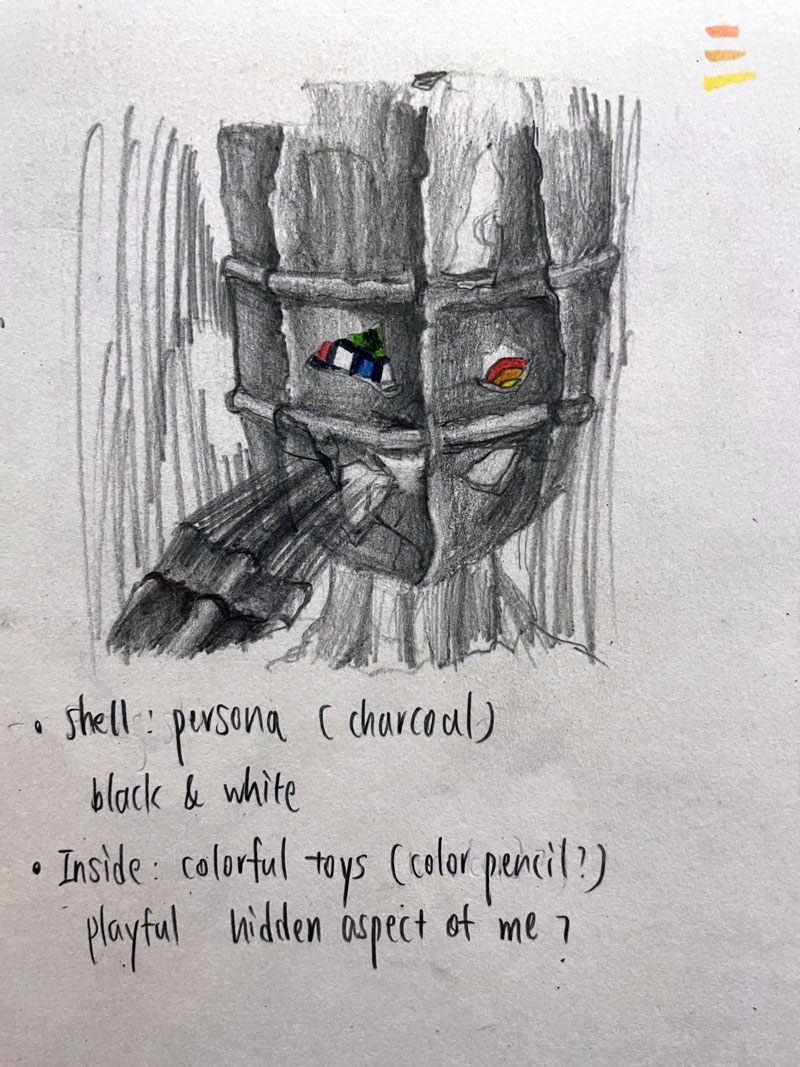 • shell : persona (charcoal)
black & white
• Inside : colorful toys (color pencil?)
playful hidden aspect of me ?